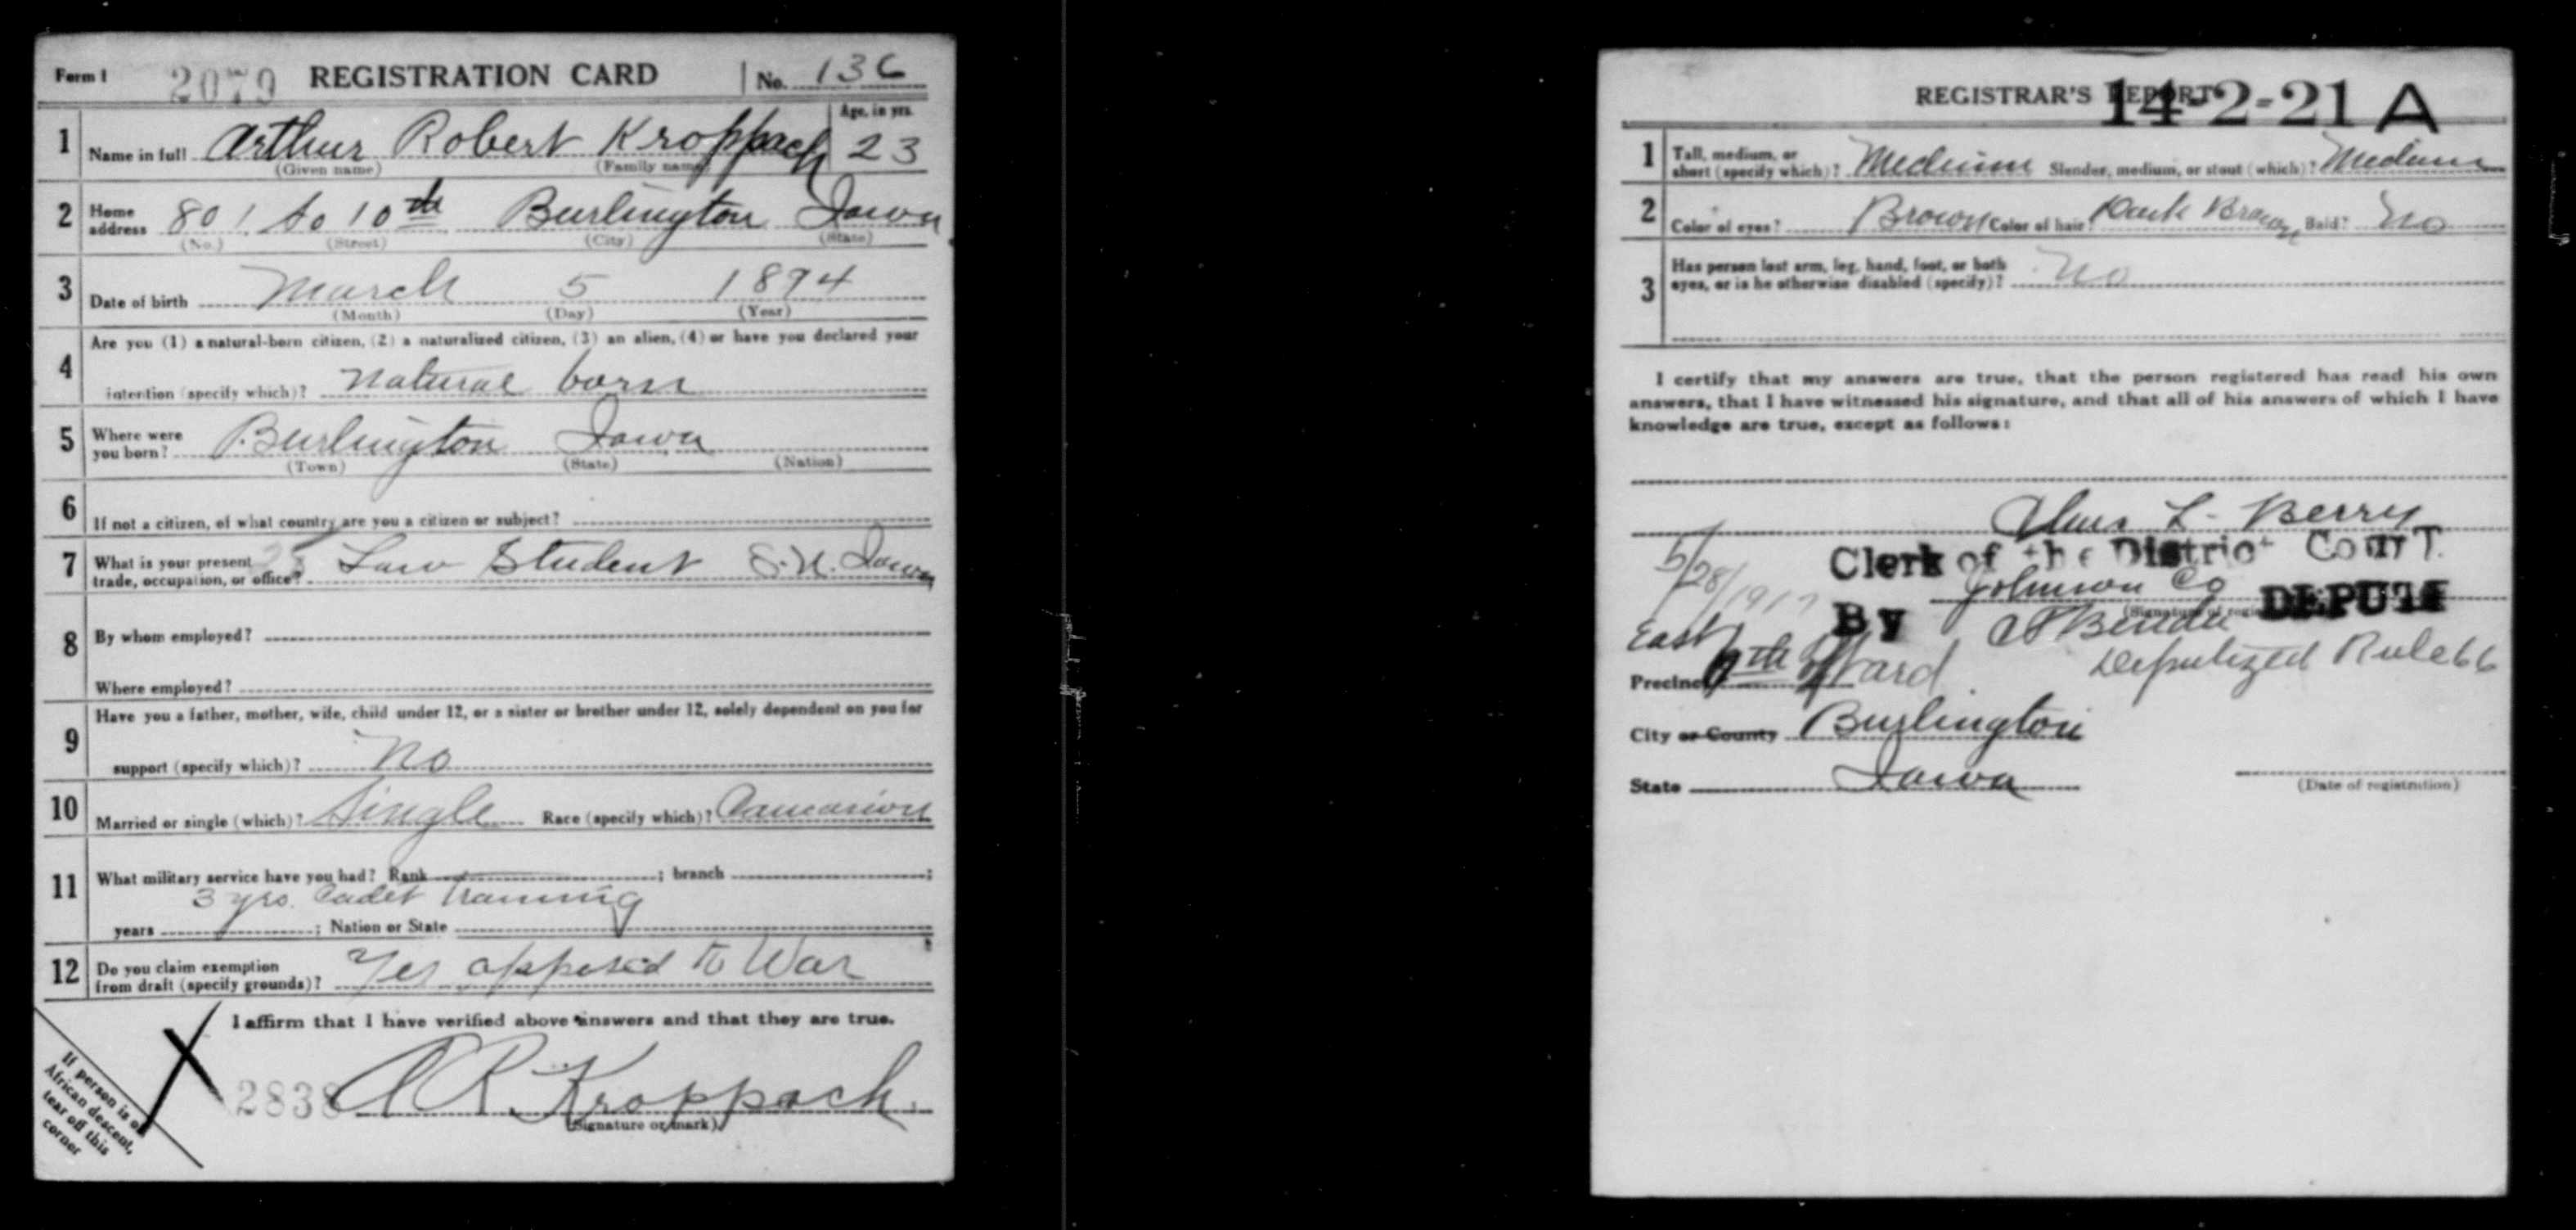 Form 1 2079 REGISTRATION CARD No. 136
1 Name in full Arthur Robert Kroppach Age, in yrs. 23
(Given name) (Family name)
2 Home address 801 So 10th Burlington Iowa
(No.) (Street) (City) (State)
3 Date of birth March 5 1894
(Month) (Day) (Year)
4 Are you (1) a natural-born citizen, (2) a naturalized citizen, (3) an alien, (4) or have you declared your
intention (specify which)? natural born
5 Where were you born? Burlington Iowa
(Town) (State) (Nation)
6 If not a citizen, of what country are you a citizen or subject?
7 What is your present trade, occupation, or office? Law Student S.U. Iowa
8 By whom employed?
Where employed?
9 Have you a father, mother, wife, child under 12, or a sister or brother under 12, solely dependent on you for
support (specify which)? No
10 Married or single (which)? Single Race (specify which)? Caucasion
11 What military service have you had? Rank ; branch ;
3 yrs. Cadet Training
years ; Nation or State
12 Do you claim exemption from draft (specify grounds)? Yes opposed to War
I affirm that I have verified above answers and that they are true.
2838 A R. Kroppach
(Signature or mark)
If person is of
African descent,
tear off this
corner
REGISTRAR'S REPORT 14-2-21 A
1 Tall, medium, or short (specify which)? Medium Slender, medium, or stout (which)? Medium
2 Color of eyes? Brown Color of hair? Dark Brown Bald? No
3 Has person lost arm, leg, hand, foot, or both eyes, or is he otherwise disabled (specify)? No
I certify that my answers are true, that the person registered has read his own
answers, that I have witnessed his signature, and that all of his answers of which I have
knowledge are true, except as follows:
L. Berry
Clerk of the District CourT.
5/28/1917 Johnson Co
(Signature of
By Bender DEPUTY
East
Precinct Ward Deputized Rule 66
City or County Burlington
State Iowa
(Date of registration)